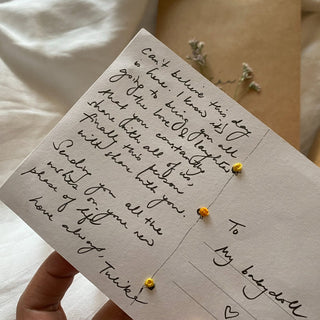 can't believe this day
is here. I know it's
going to bring you all
the love & laughter
that you constantly
share with all of us,
finally this person
will share with you.
Sending you all the
wishes on your new
phase of life
love always,
To
My babydoll
♡